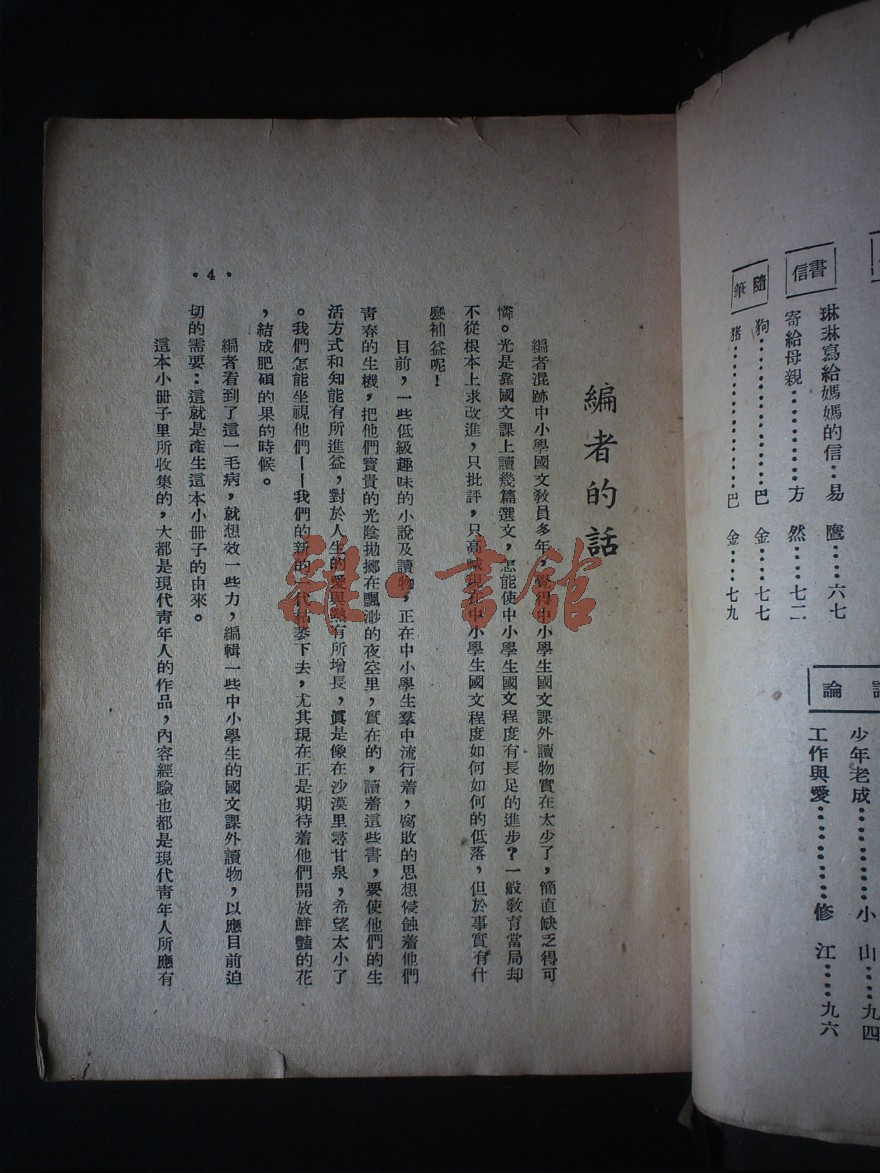 書信
琳琳寫給媽媽的信‥易鷹‥‥六七
寄給母親‥‥‥‥‥方然‥‥七二
隨筆
狗‥‥‥‥‥‥‥‥巴金‥‥七七
豬‥‥‥‥‥‥‥‥巴金‥‥七九
論
少年老成‥‥‥‥‥小山‥‥九四
工作與愛‥‥‥‥‥修江‥‥九六
編者的話
編者混跡中小學國文敎員多年,覺得中小學生國文課外讀物實在太少了,簡直缺乏得可
憐。光是靠國文課上讀幾篇選文,怎能使中小學生國文程度有長足的進步?一般敎育當局却
不從根本上求改進,只批評,只高喊現在中小學生國文程度如何如何的低落,但於事實有什
麼補益呢!
目前,一些低級趣味的小說及讀物,正在中小學生羣中流行着,腐敗的思想侵蝕着他們
靑春的生機,把他們寶貴的光陰拋擲在飄渺的夜空里,實在的,讀着這些書,要使他們的生
活方式和知能有所進益,對於人生的愛與熱有所增長,眞是像在沙漠里尋甘泉,希望太小了
。我們怎能坐視他們——我們的新的一代枯萎下去,尤其現在正是期待着他們開放鮮豔的花
,結成肥碩的果的時候。
編者看到了這一毛病,就想效一些力,編輯一些中小學生的國文課外讀物,以應目前迫
切的需要:這就是產生這本小冊子的由來。
這本小冊子里所收集的,大都是現代靑年人的作品,內容經驗也都是現代靑年人所應有
•4•
雜·書館